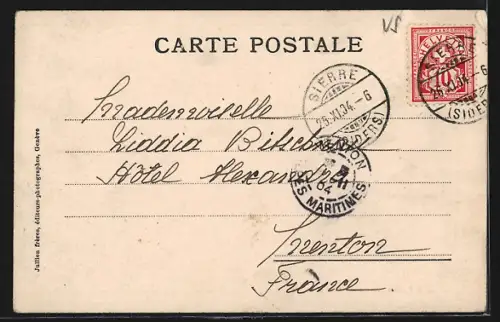 VS
CARTE POSTALE
HELVETIA
10
SIERRE
25.XI.04.-6
(SIDERS)
SIERRE
25.XI.04.-6
(SIDERS)
Mademoiselle
Liddia
Hôtel Alexandra
MENTON
04
ES MARITIMES
Menton
France.
Jullien frères, éditeurs-photographes, Genève